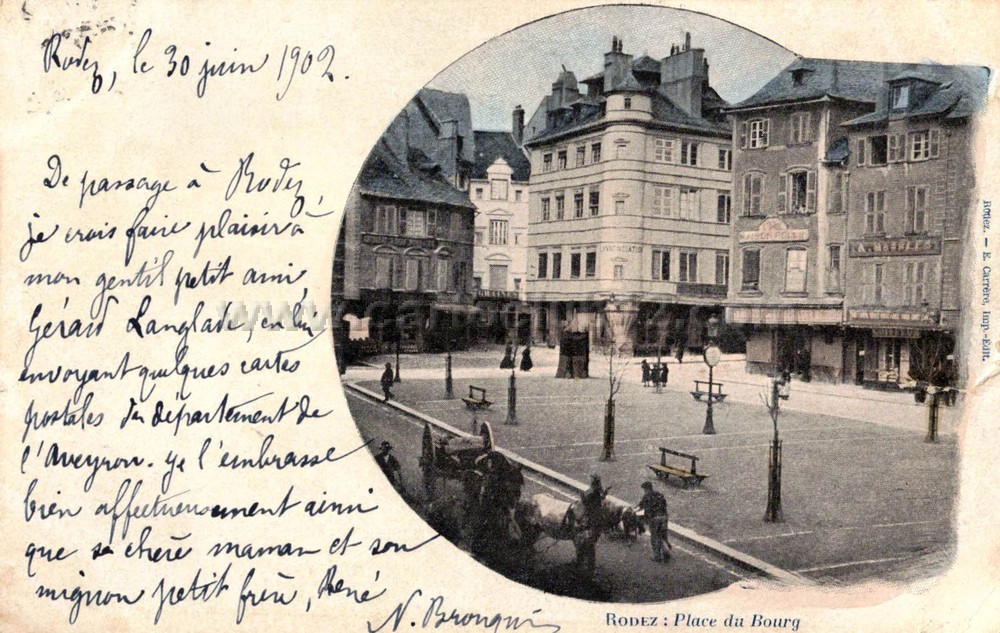 Rodez, le 30 juin 1902.
De passage à Rodez,
je crois faire plaisir à
mon gentil petit ami,
Gérard Langlade, en lui
envoyant quelques cartes
postales du département de
l'Aveyron. Je l'embrasse
bien affectueusement ainsi
que sa chère maman et son
mignon petit frère, René
N. Bronqui
RODEZ : Place du Bourg
Rodez. — E. Carrère, Imp.-Edit.